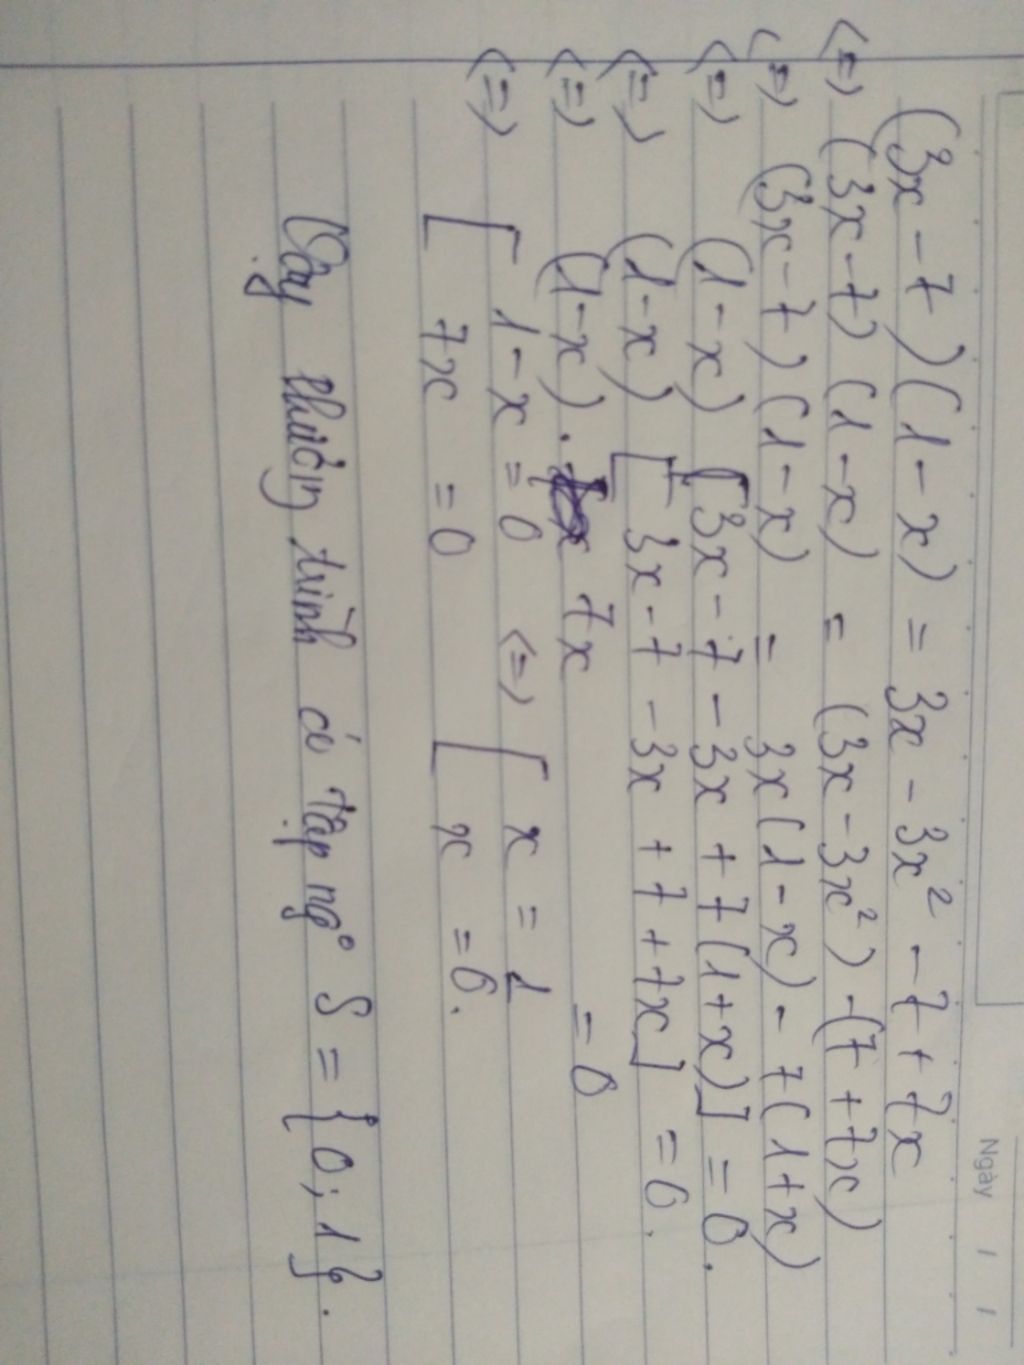 Ngày / /
(3x - 7)(1 - x) = 3x - 3x² - 7 + 7x
<=> (3x - 7)(1 - x) = (3x - 3x²) - (7 + 7x)
<=> (3x - 7)(1 - x) = 3x(1 - x) - 7(1 + x)
<=> (1 - x) [3x - 7 - 3x + 7(1 + x)] = 0.
<=> (1 - x) [3x - 7 - 3x + 7 + 7x] = 0.
<=> (1 - x). 7x = 0
<=> [ 1 - x = 0 <=> [ x = 1
7x = 0 x = 0.
Vậy phương trình có tập ng° S = {0; 1}.